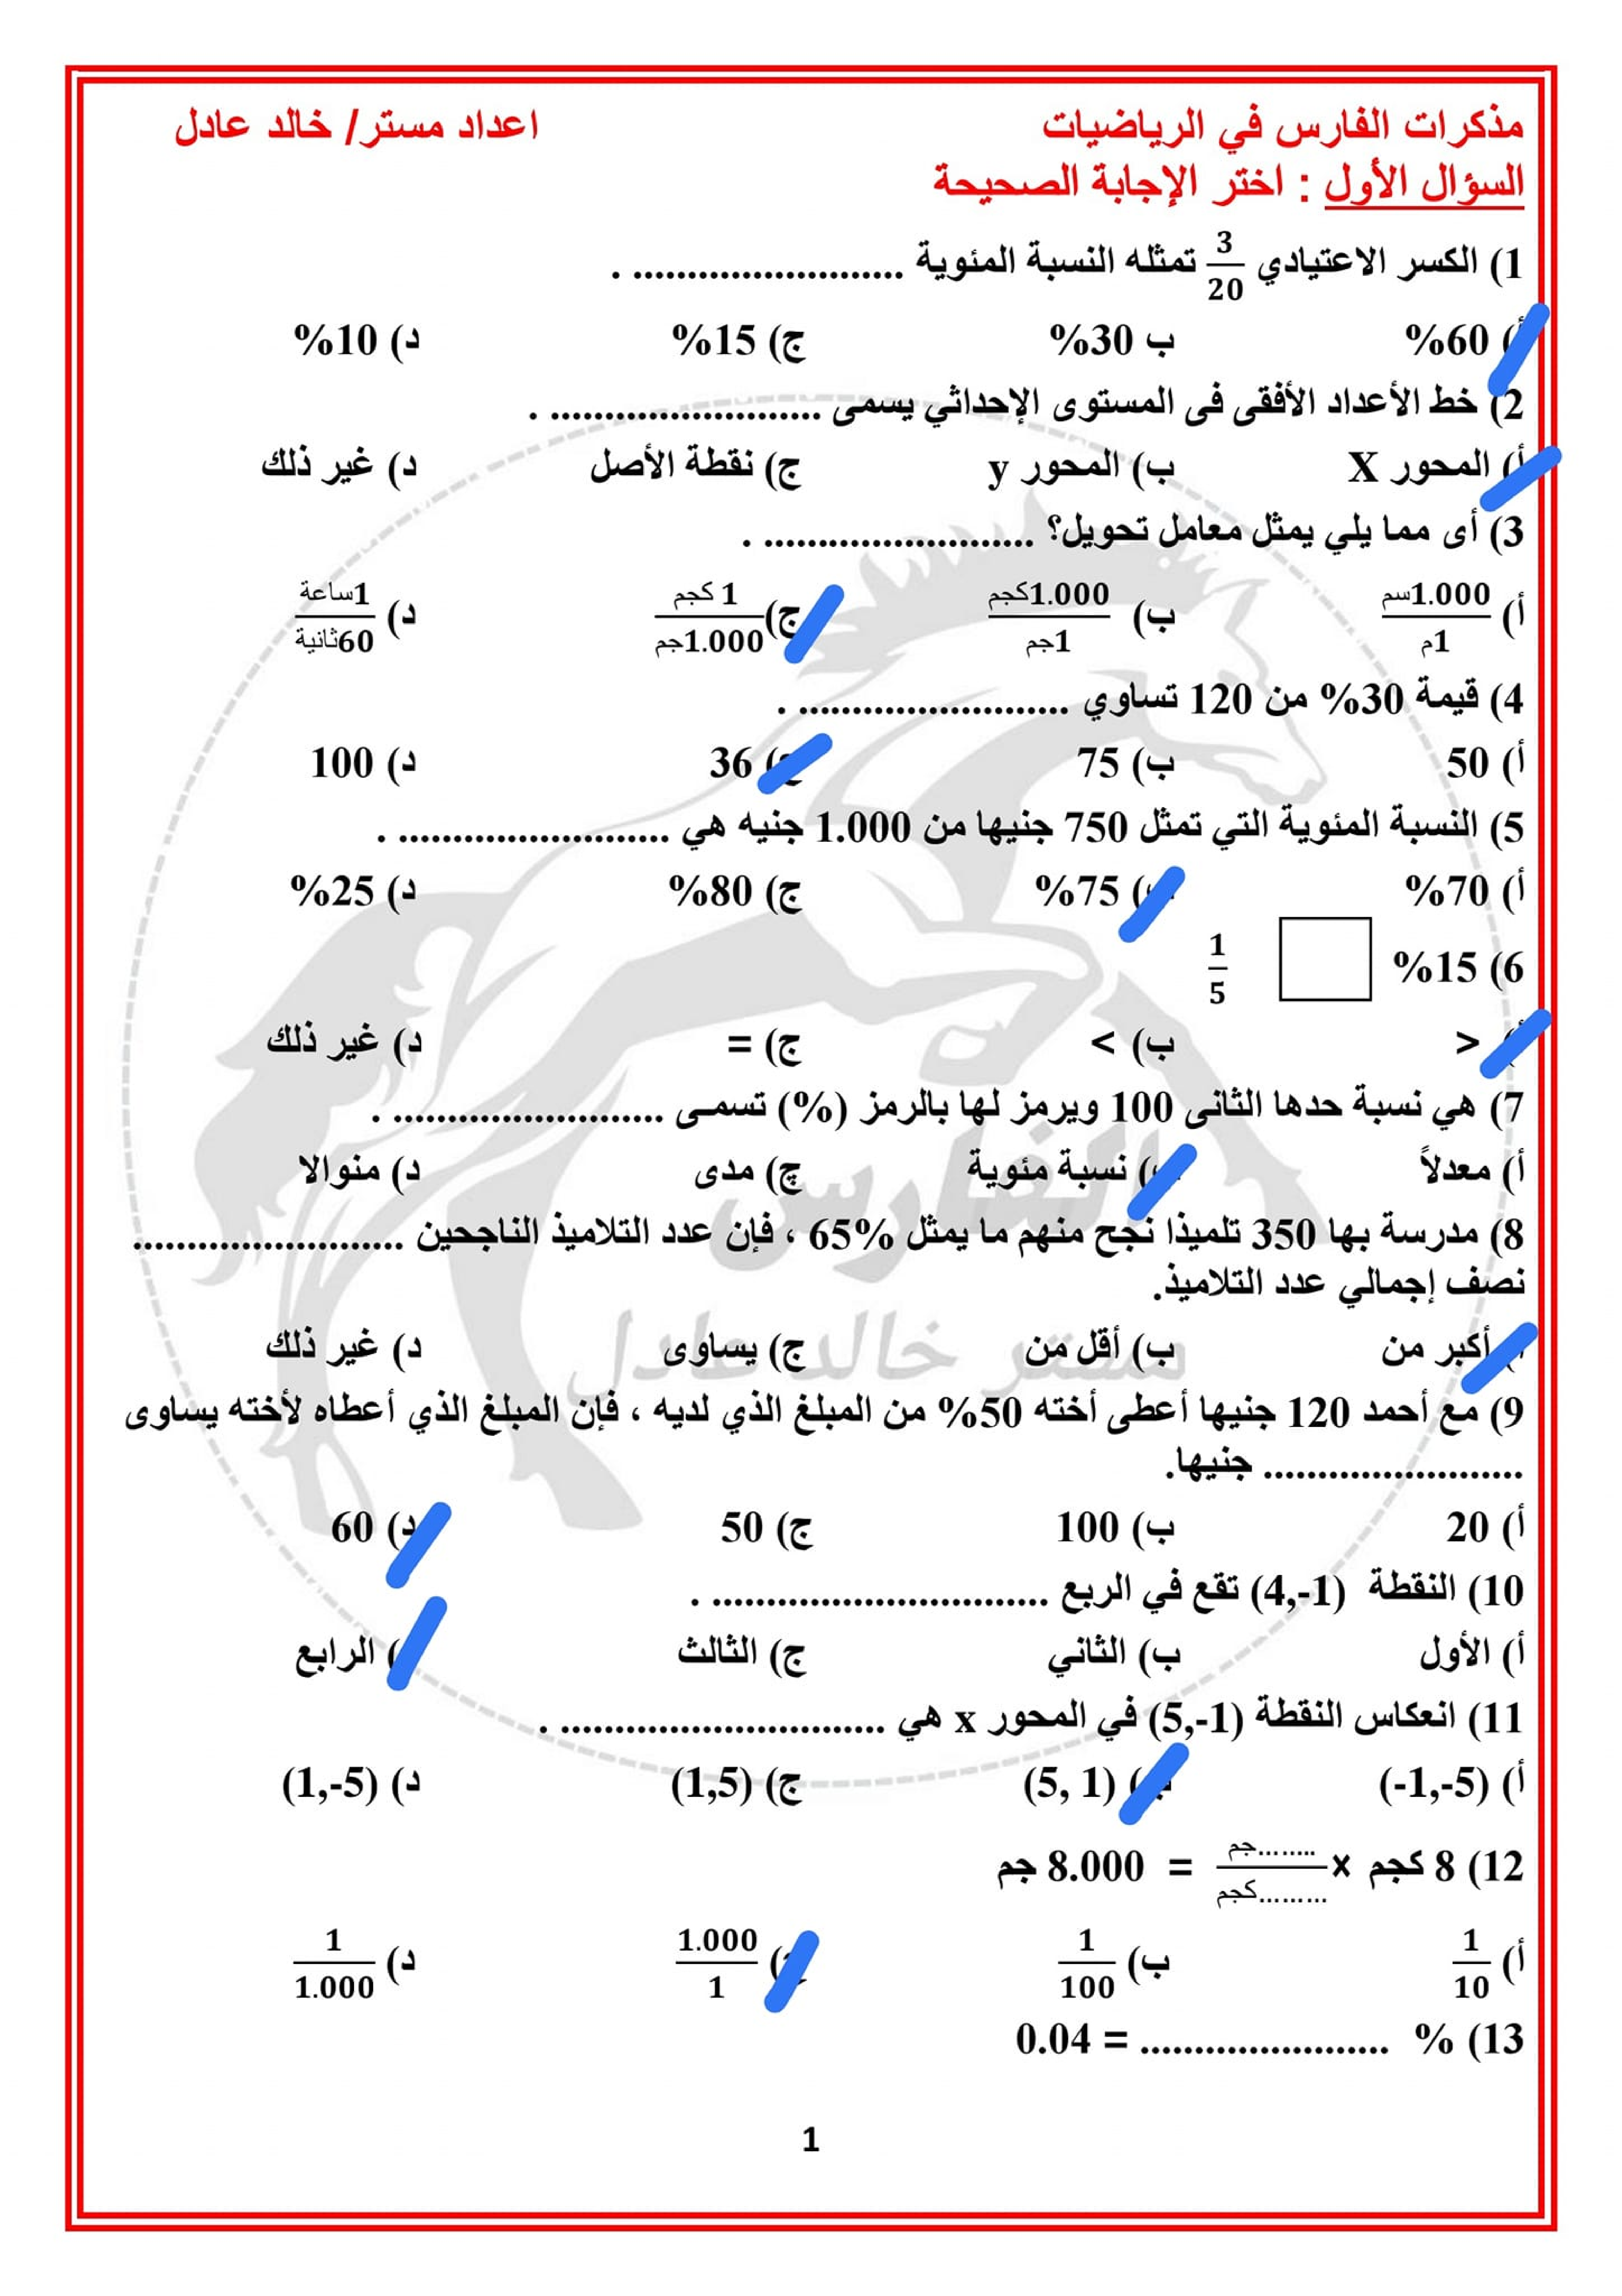 مذكرات الفارس في الرياضيات اعداد مستر/ خالد عادل
السؤال الأول : اختر الإجابة الصحيحة
1) الكسر الاعتيادي 3/20 تمثله النسبة المئوية ......................... .
أ) 60% ب 30% ج) 15% د) 10%
2) خط الأعداد الأفقى فى المستوى الإحداثي يسمى ......................... .
أ) المحور X ب) المحور y ج) نقطة الأصل د) غير ذلك
3) أى مما يلي يمثل معامل تحويل؟ ......................... .
أ) 1.000سم/1م ب) 1.000كجم/1جم ج) 1 كجم/1.000جم د) 1ساعة/60ثانية
4) قيمة 30% من 120 تساوي ......................... .
أ) 50 ب) 75 ج) 36 د) 100
5) النسبة المئوية التي تمثل 750 جنيها من 1.000 جنيه هي ......................... .
أ) 70% ب) 75% ج) 80% د) 25%
6) 15% 1/5
أ) > ب) < ج) = د) غير ذلك
7) هي نسبة حدها الثانى 100 ويرمز لها بالرمز (%) تسمى ......................... .
أ) معدلاً ب) نسبة مئوية چ) مدى د) منوالا
8) مدرسة بها 350 تلميذا نجح منهم ما يمثل 65% ، فإن عدد التلاميذ الناجحين .........................
نصف إجمالي عدد التلاميذ.
أ) أكبر من ب) أقل من ج) يساوى د) غير ذلك
9) مع أحمد 120 جنيها أعطى أخته 50% من المبلغ الذي لديه ، فإن المبلغ الذي أعطاه لأخته يساوى
........................ جنيها.
أ) 20 ب) 100 ج) 50 د) 60
10) النقطة (4,-1) تقع في الربع ............................... .
أ) الأول ب) الثاني ج) الثالث د) الرابع
11) انعكاس النقطة (5,-1) في المحور x هي .............................. .
أ) (-1,-5) ب) (5, 1) ج) (1,5) د) (1,-5)
12) 8 كجم × ........جم/.........كجم = 8.000 جم
أ) 1/10 ب) 1/100 ج) 1.000/1 د) 1/1.000
13) % ....................... = 0.04
الفارس
مستر خالد عادل
1